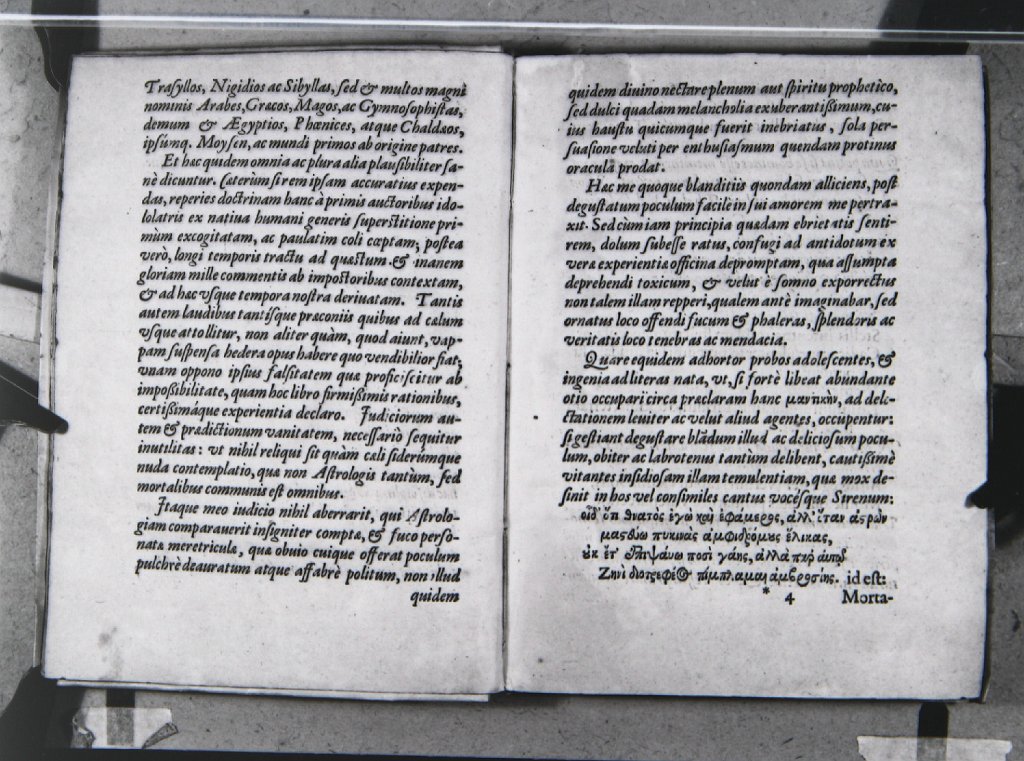 Trasyllos, Nigidios ac Sibyllas, sed & multos magni
nominis Arabes, Græcos, Magos, ac Gymnosophistas,
demum & Ægyptios, Phœnices, atque Chaldæos,
ipsumq. Moysen, ac mundi primos ab origine patres.
Et hæc quidem omnia ac plura alia plausibiliter sa-
nè dicuntur. Cæterùm si rem ipsam accuratius expen-
das, reperies doctrinam hanc à primis auctoribus ido-
lolatris ex natiua humani generis superstitione pri-
mùm excogitatam, ac paulatim coli cœptam; postea
verò, longi temporis tractu ad quæstum & inanem
gloriam mille commentis ab impostoribus contextam,
& ad hæc vsque tempora nostra deriuatam. Tantis
autem laudibus tantisque præconiis quibus ad cælum
vsque attollitur, non aliter quàm, quod aiunt, vap-
pam suspensa hedera opus habere quo vendibilior fiat;
vnam oppono ipsius falsitatem quæ proficiscitur ab
impoßibilitate, quam hoc libro firmißimis rationibus,
certißimáque experientia declaro. Iudiciorum au-
tem & prædictionum vanitatem, necessariò sequitur
inutilitas: vt nihil reliqui sit quàm cæli siderúmque
nuda contemplatio, quæ non Astrologis tantùm, sed
mortalibus communis est omnibus.
Itaque meo iudicio nihil aberrarit, qui Astrolo-
giam comparauerit insigniter comptæ, & fuco perso-
natæ meretriculæ, quæ obuio cuique offerat poculum
pulchrè deauratum atque affabrè politum, non illud
quidem
quidem diuino nectare plenum aut spiritu prophetico,
sed dulci quadam melancholia exuberantißimum, cu-
ius haustu quicumque fuerit inebriatus, sola per-
suasione veluti per enthusiasmum quendam protinus
oracula prodat.
Hæc me quoque blanditiis quondam alliciens, post
degustatum poculum facilè in sui amorem me pertra-
xit. Sed cùm iam principia quædam ebrietatis senti-
rem, dolum subesse ratus, confugi ad antidotum ex
veræ experientiæ officina depromptam, qua assumpta
deprehendi toxicum, & velut è somno exporrectus
non talem illam repperi, qualem antè imaginabar, sed
ornatus loco offendi fucum & phaleras, splendoris ac
veritatis loco tenebras ac mendacia.
Quare equidem adhortor probos adolescentes, &
ingenia ad literas nata, vt, si fortè libeat abundante
otio occupari circa præclaram hanc μαντικὴν, ad dele-
ctationem leuiter ac velut aliud agentes, occupentur:
si gestiant degustare blādum illud ac deliciosum pocu-
lum, obiter ac labrotenus tantùm delibent, cautißimè
vitantes insidiosam illam temulentiam, quæ mox de-
sinit in hos vel consimiles cantus vocésque Sirenum:
οἶδ' ὅτι θνατὸς ἐγὼ καὶ ἐφάμερος, ἀλλ' ὅταν ἄστρων
μαστεύω πυκινὰς ἀμφιδρόμους ἕλικας,
οὐκ ἔτ' ἐπιψαύω ποσὶ γαίης, ἀλλὰ παρ' αὐτῷ
Ζηνὶ διοτρεφέος πίμπλαμαι ἀμβροσίης. id est:
* 4 Morta-